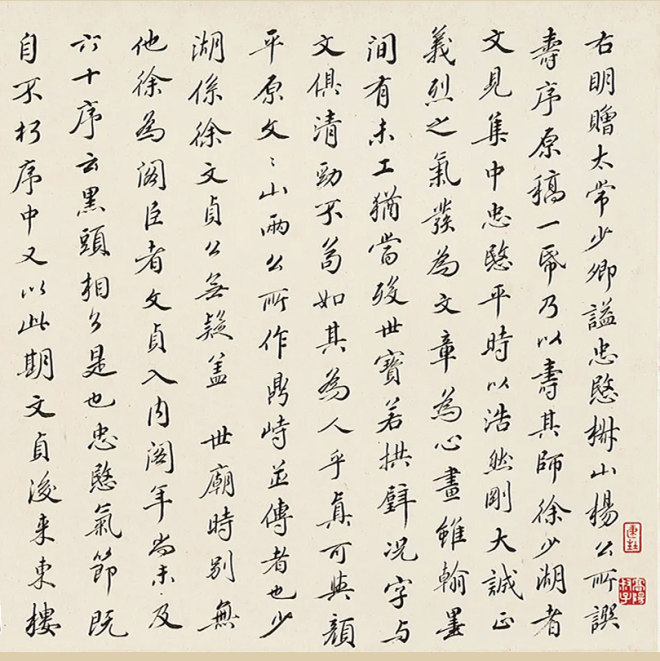 右明贈太常少卿謚忠愍椒山楊公所譔
壽序原稿一帋乃以壽其師徐少湖者
文見集中忠愍平時以浩然剛大誠正
義烈之氣發為文章為心畫雖翰墨
間有未工猶當後世寶若拱璧況字与
文俱清勁不茍如其為人乎真可與顏
平原文〻山兩公所作鼎峙並傳者也少
湖係徐文貞公無疑盖世廟時別無
他徐為閣臣者文貞入內閣年尚未及
六十序云黑頭相公是也忠愍氣節既
自不朽序中又以此期文貞後来東樓